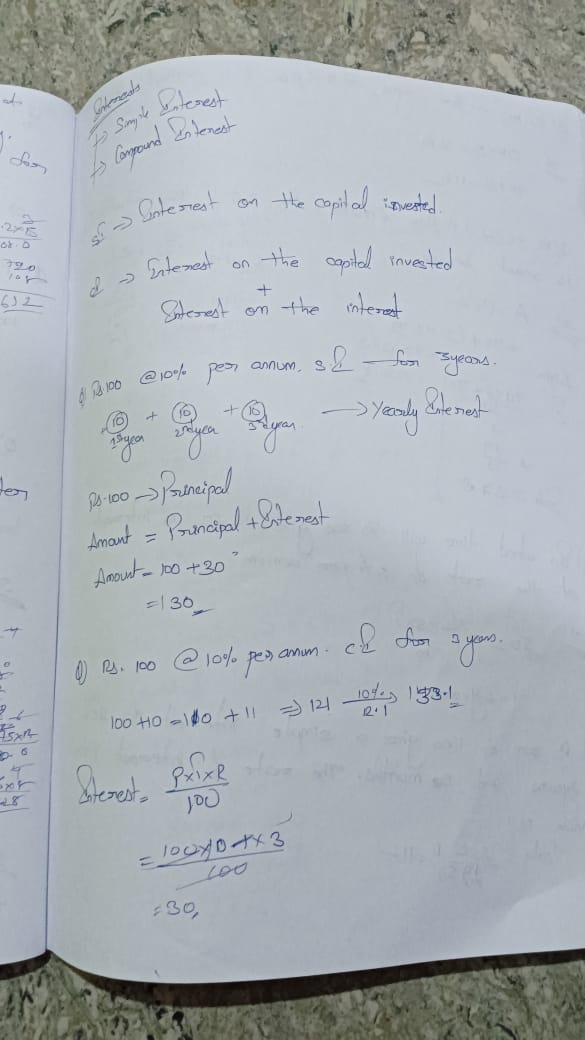 Interests
→ Simple Interest
→ Compound Interest
SI → Interest on the capital invested.
CI → Interest on the capital invested
+
Interest on the interest
Q) Rs.100 @10% per annum. SI — for 3years.
10 + 10 + 10 → Yearly Interest
1st year 2nd year 3rd year
Rs-100 → Principal
Amount = Principal + Interest
Amount = 100 +30
=130
Q) Rs. 100 @ 10% per annum. CI for 3 years.
100 +10 = 110 + 11 ⇒ 121 10% 12.1 133.1
Interest = PxTxR
100
= 100x10 x 3
100
=30,